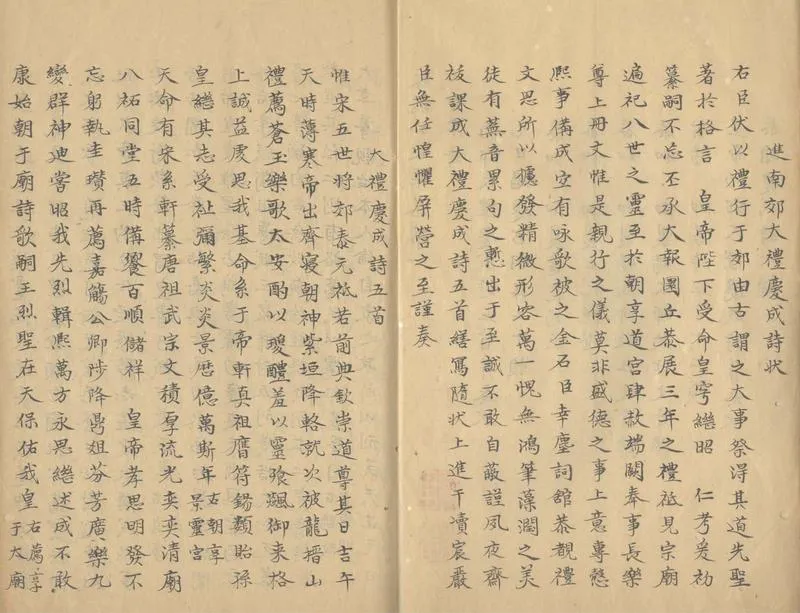 進南郊大禮慶成詩狀
右臣伏以禮行于郊由古謂之大事祭得其道先聖
著於格言　皇帝陛下受命皇穹繼昭　仁考爰初
纂嗣不忘丕承大報圜丘恭展三年之禮祗見宗廟
遍祀八世之靈至於朝享道宮肆赦端闕奉事長樂
尊上冊文惟是親行之儀莫非盛德之事上意專慤
熙事備成宜有咏歌被之金石臣幸塵詞舘恭覩禮
文思所以攄發精微形容萬一愧無鴻筆藻潤之美
徒有蕪音累句之慙出于至誠不敢自蔽謹夙夜齋
祓課成大禮慶成詩五首繕寫隨狀上進干瀆宸嚴
臣無任惶懼屏營之至謹奏
大禮慶成詩五首
惟宋五世將郊泰元祗若前典欽崇道尊其日吉午
天時薄寒帝出齊寢朝神紫垣降輅就次被龍搢山
禮薦蒼玉樂歌太安酌以瑷醴羞以靈飱飈御来格
上誠益虔思我基命系于帝軒真祖膺符錫類貽孫
皇繼其志受祉彌繁炎炎景歷億萬斯年右朝享景靈宮
天命有宋系軒纂唐祖武宗文積厚流光奕奕清廟
八祏同堂五時備饗百順儲祥　皇帝孝思明發不
忘躬執圭瓚再薦嘉觴公卿陟降鼎俎芬芳廣樂九
變群神迪嘗昭我先烈輯熙萬方永思繼述成不敢
康始朝于廟詩歌嗣王烈聖在天保佑我皇右薦享于太廟